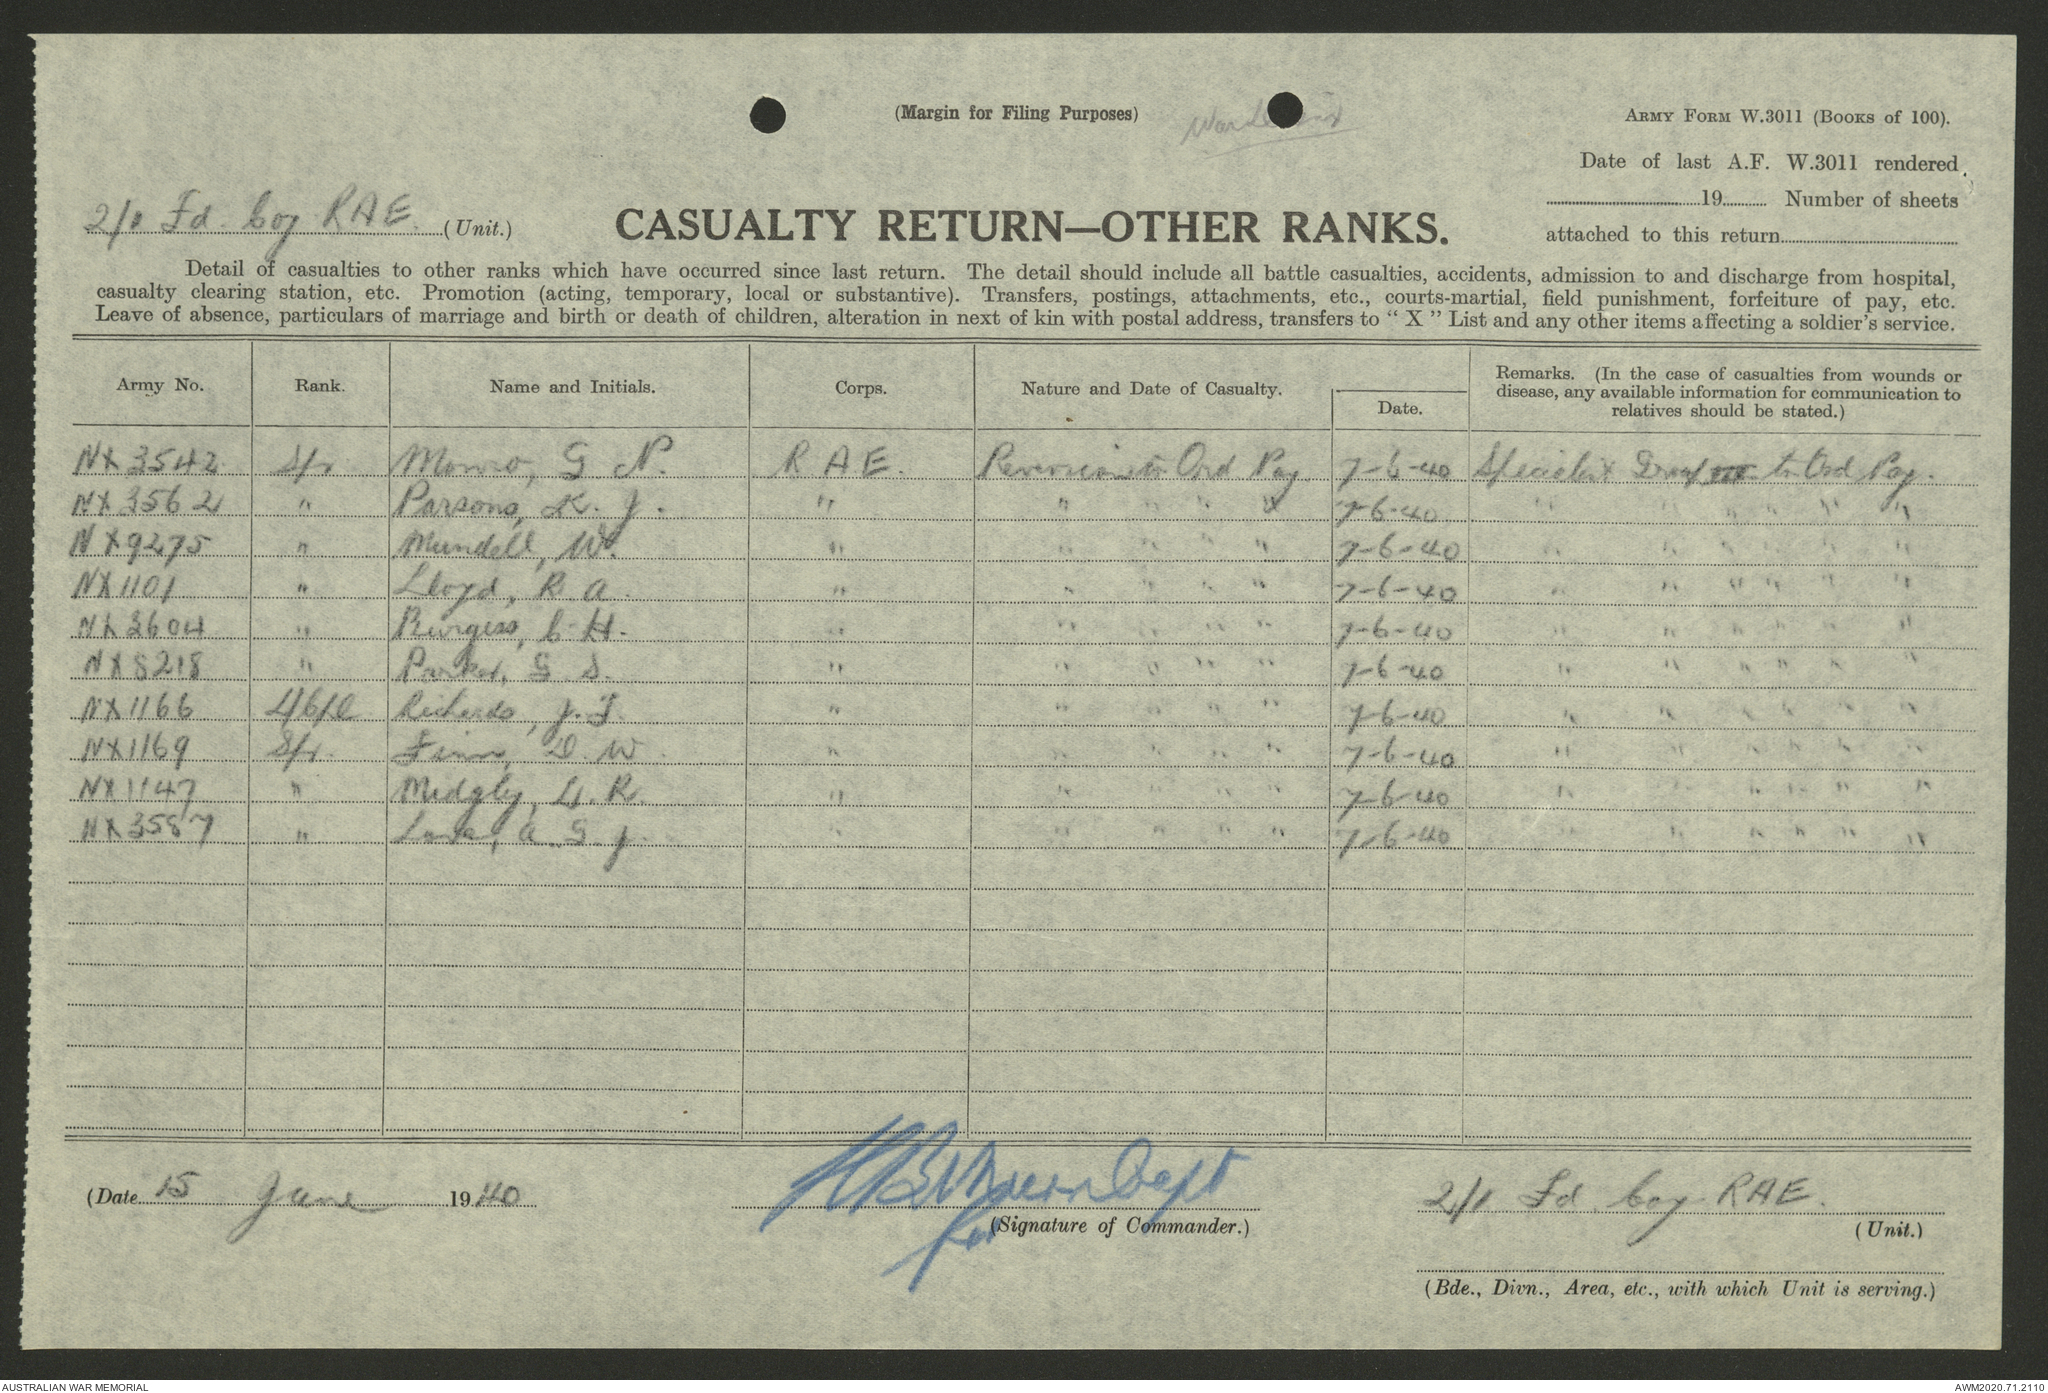 (Margin for Filing Purposes)
ARMY FORM W.3011 (BOOKS of 100).
Date of last A.F. W.3011 rendered
19 Number of sheets
attached to this return
2/1 Fd. Coy RAE. (Unit.)
CASUALTY RETURN—OTHER RANKS.
Detail of casualties to other ranks which have occurred since last return. The detail should include all battle casualties, accidents, admission to and discharge from hospital,
casualty clearing station, etc. Promotion (acting, temporary, local or substantive). Transfers, postings, attachments, etc., courts-martial, field punishment, forfeiture of pay, etc.
Leave of absence, particulars of marriage and birth or death of children, alteration in next of kin with postal address, transfers to " X " List and any other items affecting a soldier's service.
Army No. Rank. Name and Initials. Corps. Nature and Date of Casualty. Date. Remarks. (In the case of casualties from wounds or
disease, any available information for communication to
relatives should be stated.)
NX3542 Spr Monro, G N. R A E. Reversion to Ord Pay 7-6-40 Specialist to Ord Pay.
NX3562 " Parsons, K. J. " " " " " 7-6-40 " " " " " "
NX9275 " Mundell, W. " " " " " 7-6-40 " " " " " "
NX1101 " Lloyd, R A. " " " " " 7-6-40 " " " " " "
NX3604 " Burgess, C. H. " " " " " 7-6-40 " " " " " "
NX8218 " Parker, G. S. " " " " " 7-6-40 " " " " " "
NX1166 L/Cpl Richards, J. F. " " " " " 7-6-40 " " " " " "
NX1169 Spr. Finn, D. W. " " " " " 7-6-40 " " " " " "
NX1147 " Midgley, L. R. " " " " " 7-6-40 " " " " " "
NX3587 " A. G. J. " " " " " 7-6-40 " " " " " "
(Date 15 June 1940
Capt
for (Signature of Commander.)
2/1 Fd. Coy RAE.
(Unit.)
(Bde., Divn., Area, etc., with which Unit is serving.)
AUSTRALIAN WAR MEMORIAL
AWM2020.71.2110